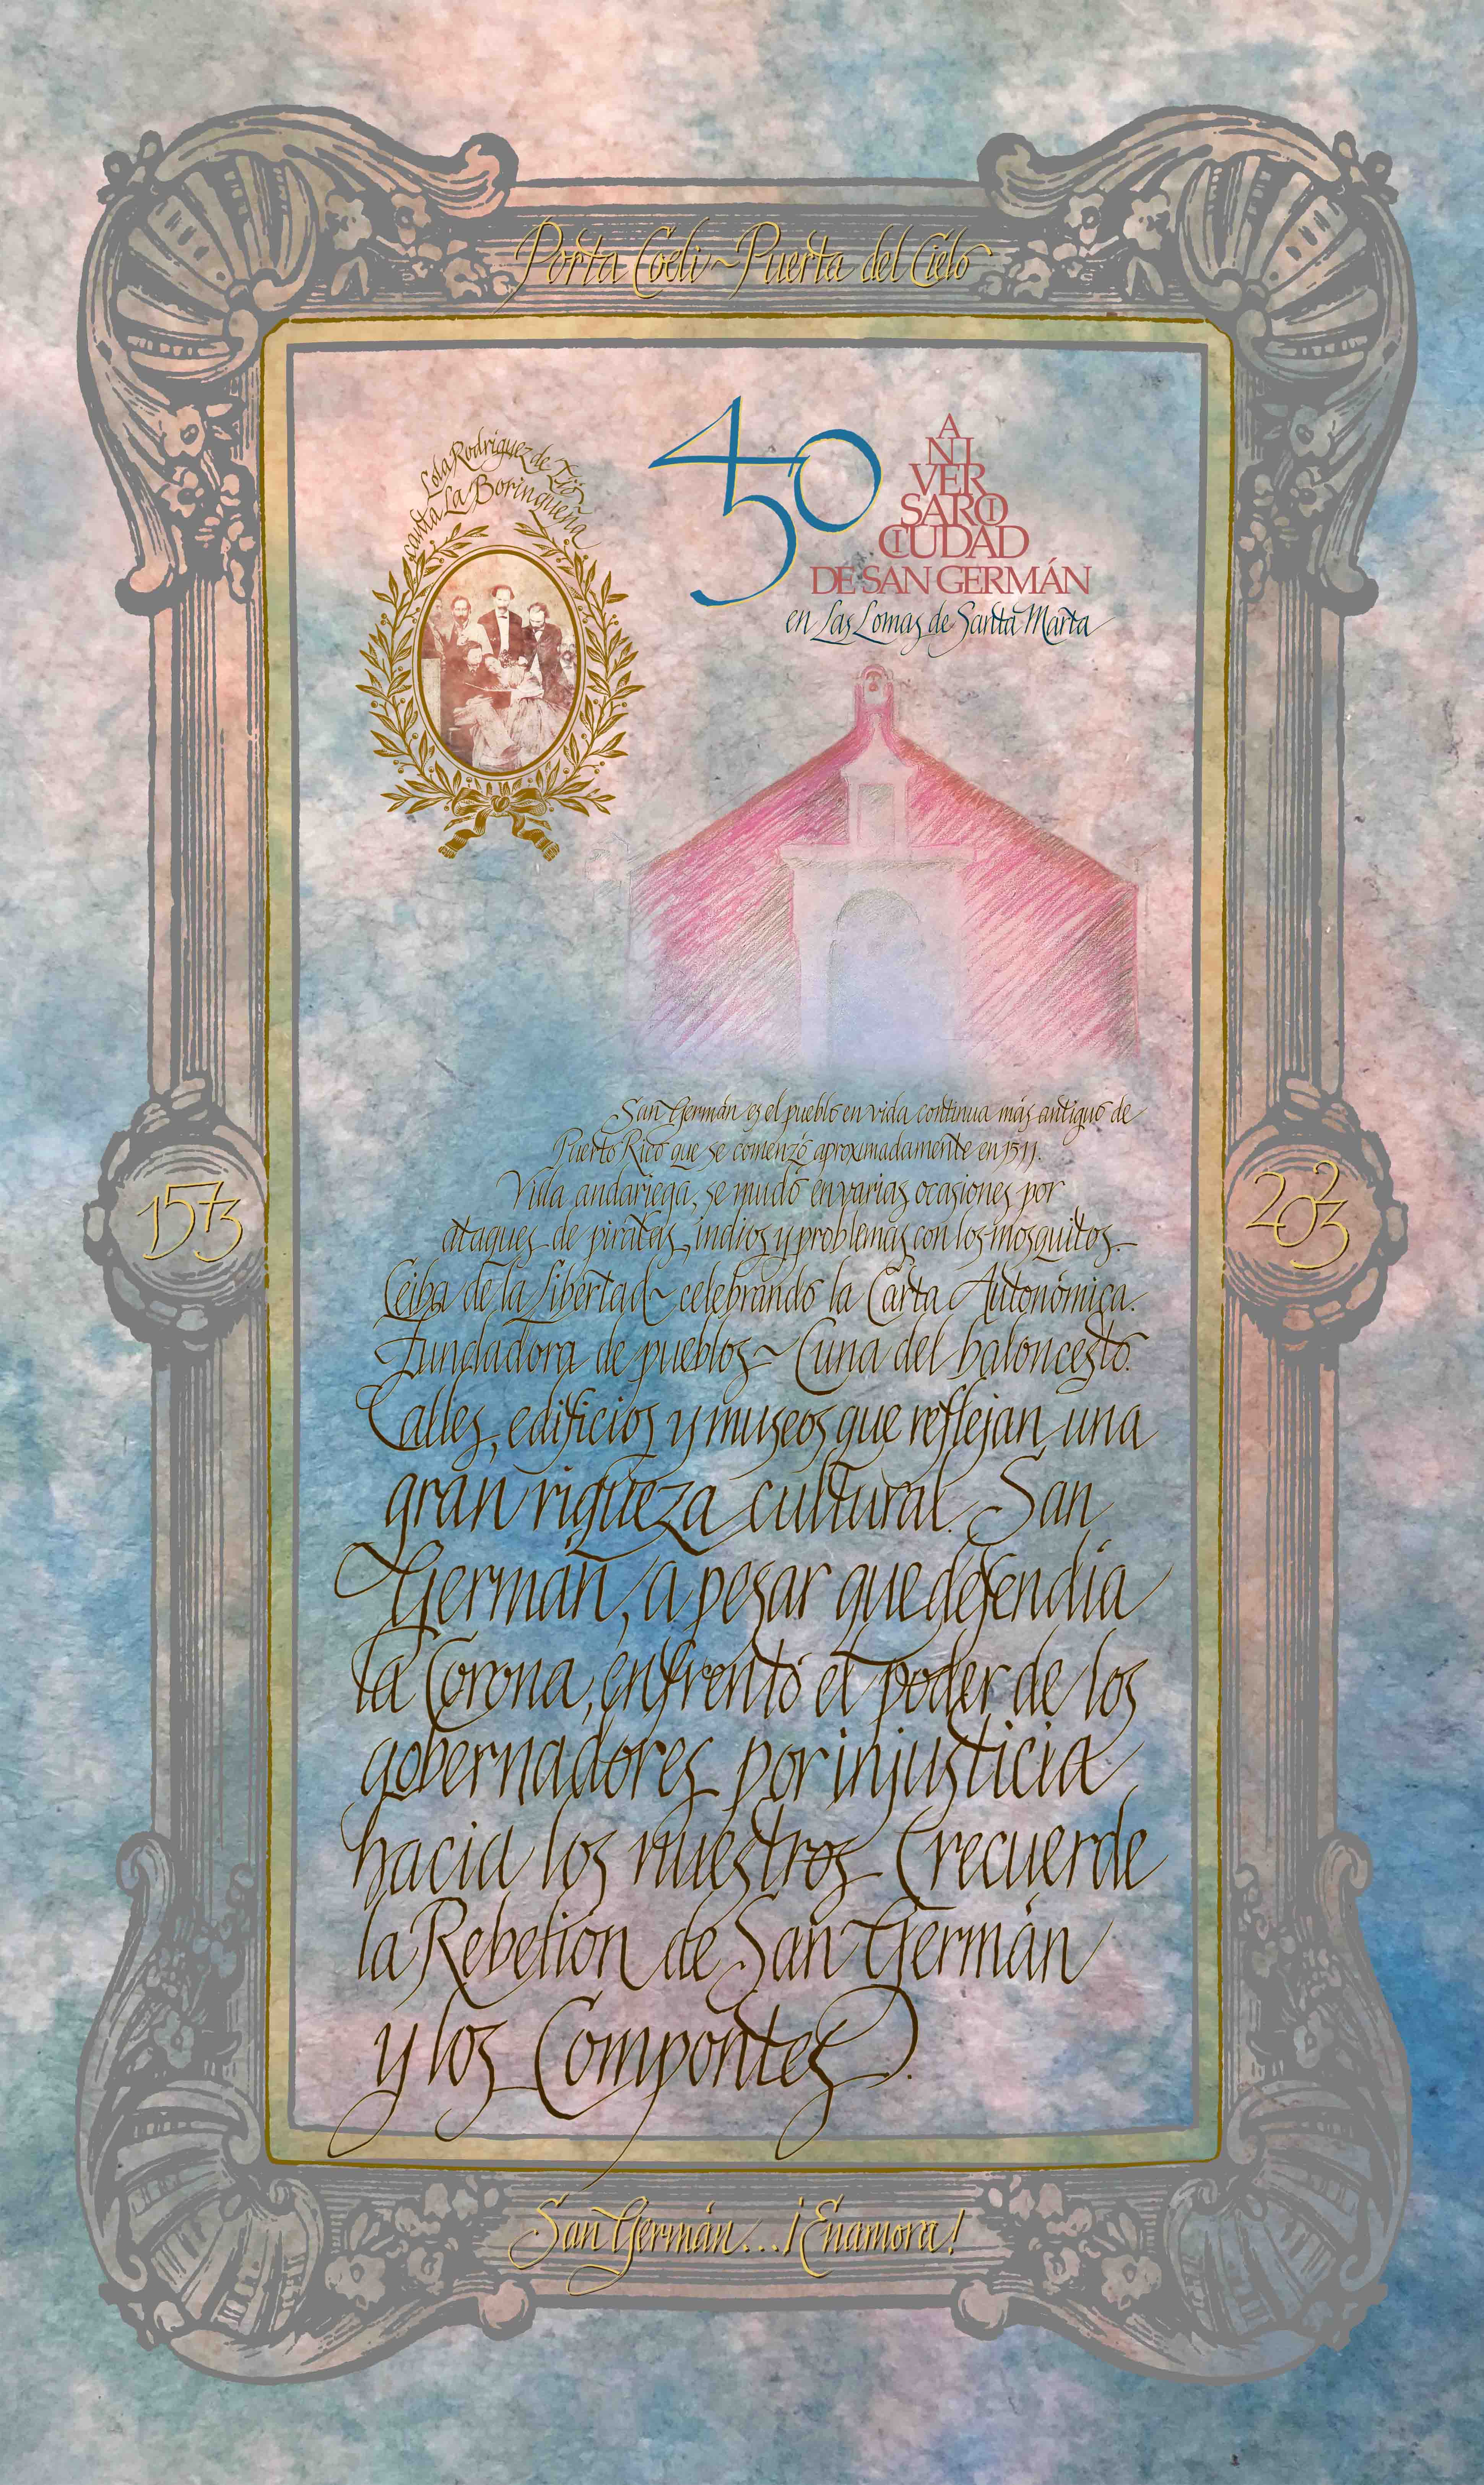 Porta Coeli ~ Puerta del Cielo
Lola Rodríguez de Tió
canta La Borinqueña
450
A
NI
VER
SARIO
CIUDAD
DE SAN GERMÁN
en Las Lomas de Santa Marta
San Germán es el pueblo en vida continua más antiguo de
Puerto Rico que se comenzó aproximadamente en 1511.
Villa andariega, se mudó en varias ocasiones por
ataques de piratas, indios y problemas con los mosquitos.
Ceiba de la Libertad ~ celebrando la Carta Autonómica.
Fundadora de pueblos ~ Cuna del baloncesto.
Calles, edificios y museos que reflejan una
gran riqueza cultural. San
Germán, a pesar que defendía
la Corona, enfrentó el poder de los
gobernadores por injusticia
hacia los nuestros (recuerde
la Rebelión de San Germán
y los Compontes).
1573
2023
San Germán... ¡Enamora!